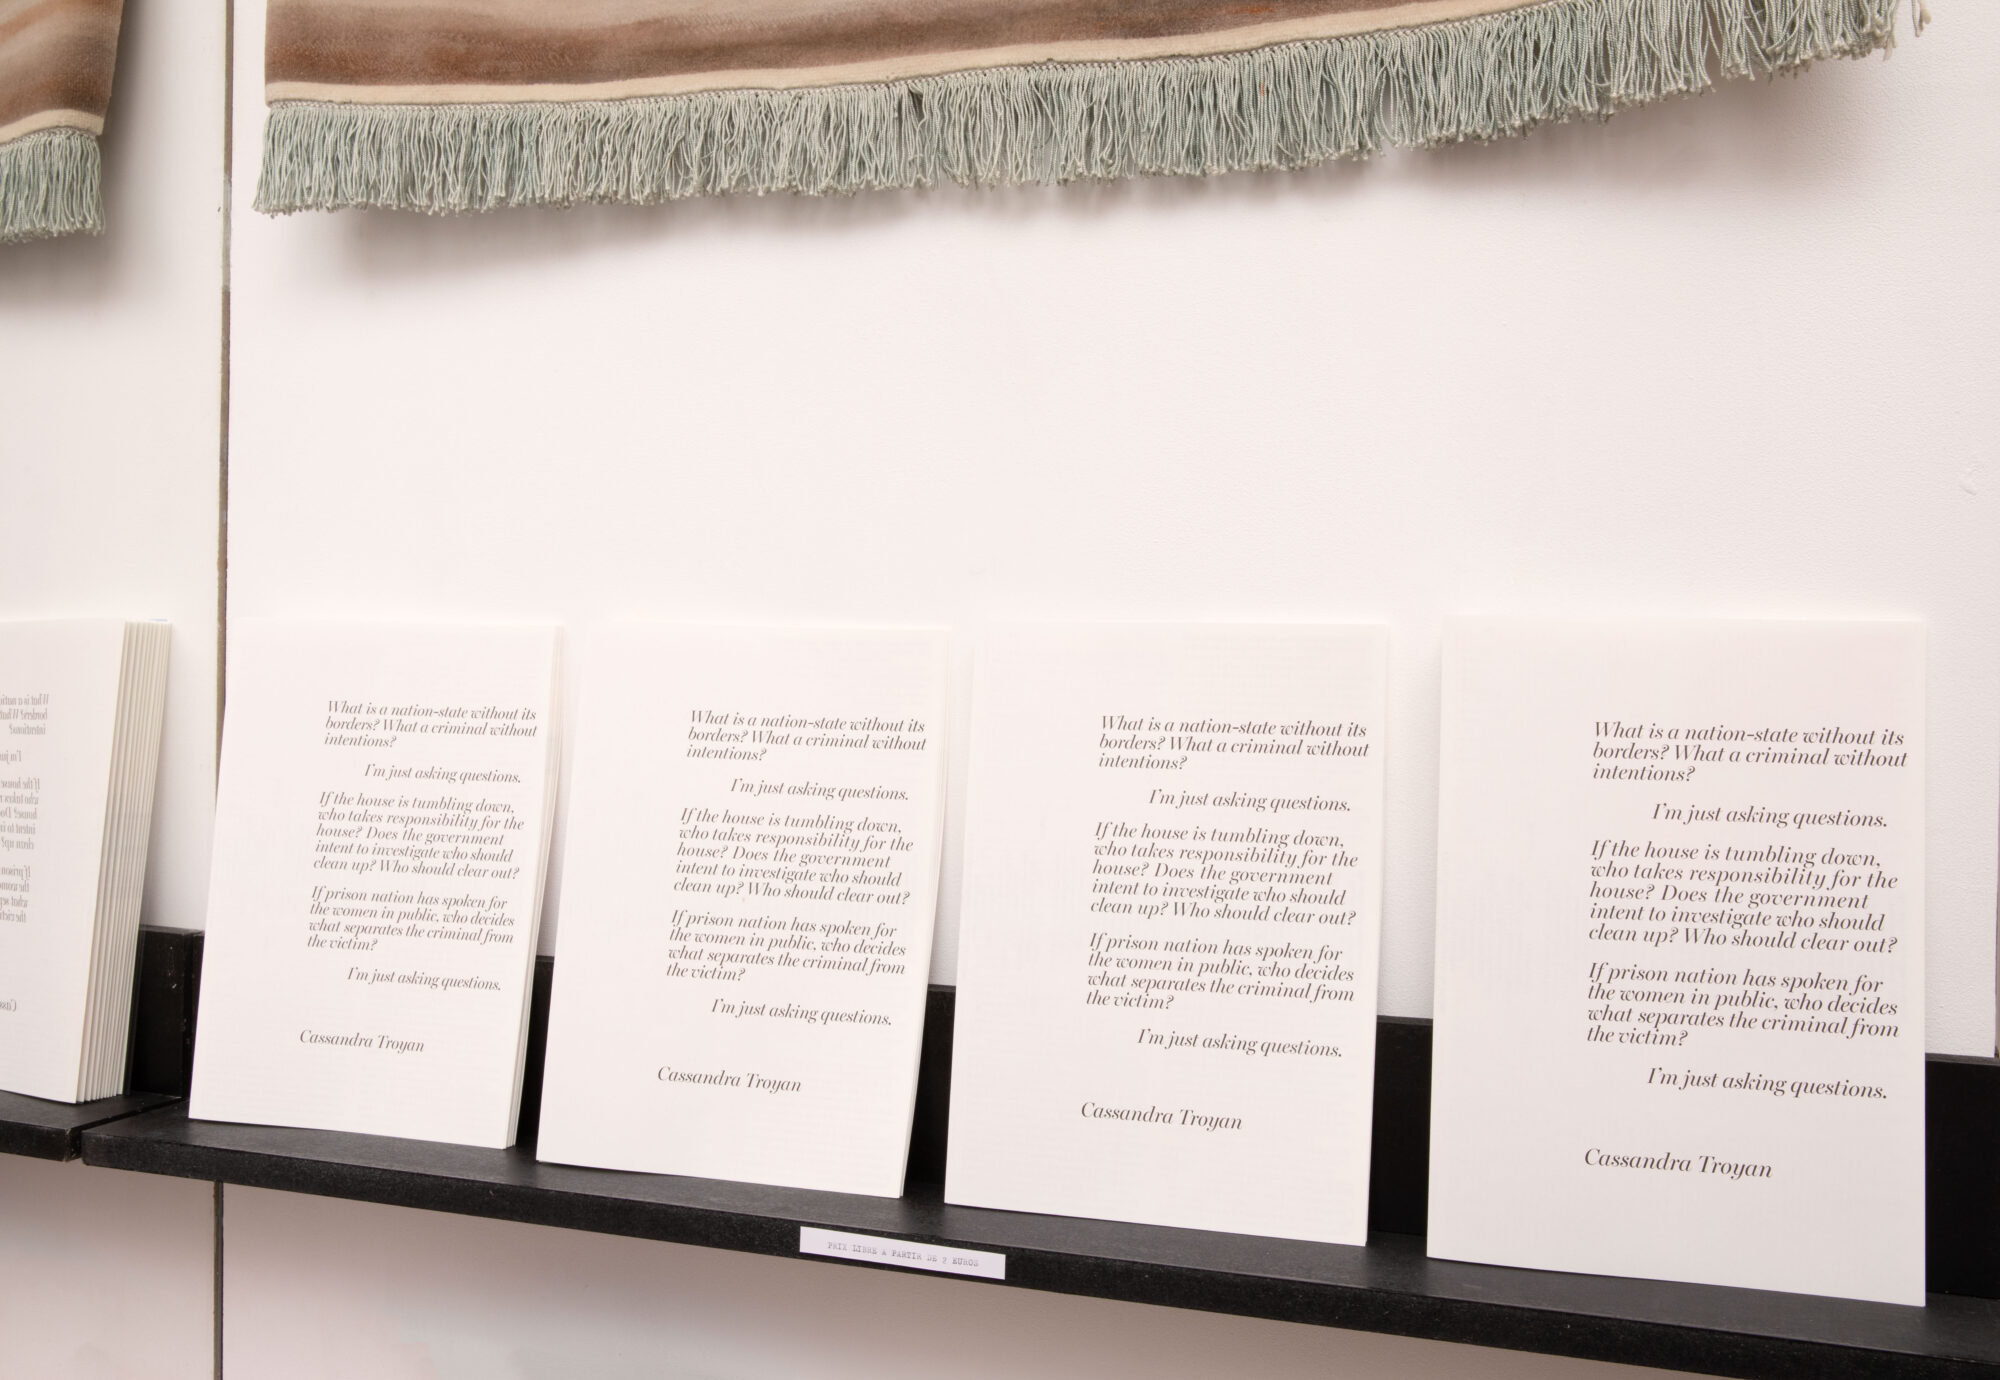 What is a nation-state without its
borders? What a criminal without
intentions?
I'm just asking questions.
If the house is tumbling down,
who takes responsibility for the
house? Does the government
intent to investigate who should
clean up? Who should clear out?
If prison nation has spoken for
the women in public, who decides
what separates the criminal from
the victim?
I'm just asking questions.
Cassandra Troyan
What is a nation-state without its
borders? What a criminal without
intentions?
I'm just asking questions.
If the house is tumbling down,
who takes responsibility for the
house? Does the government
intent to investigate who should
clean up? Who should clear out?
If prison nation has spoken for
the women in public, who decides
what separates the criminal from
the victim?
I'm just asking questions.
Cassandra Troyan
What is a nation-state without its
borders? What a criminal without
intentions?
I'm just asking questions.
If the house is tumbling down,
who takes responsibility for the
house? Does the government
intent to investigate who should
clean up? Who should clear out?
If prison nation has spoken for
the women in public, who decides
what separates the criminal from
the victim?
I'm just asking questions.
Cassandra Troyan
What is a nation-state without its
borders? What a criminal without
intentions?
I'm just asking questions.
If the house is tumbling down,
who takes responsibility for the
house? Does the government
intent to investigate who should
clean up? Who should clear out?
If prison nation has spoken for
the women in public, who decides
what separates the criminal from
the victim?
I'm just asking questions.
Cassandra Troyan
PRIX LIBRE A PARTIR DE 2 EUROS